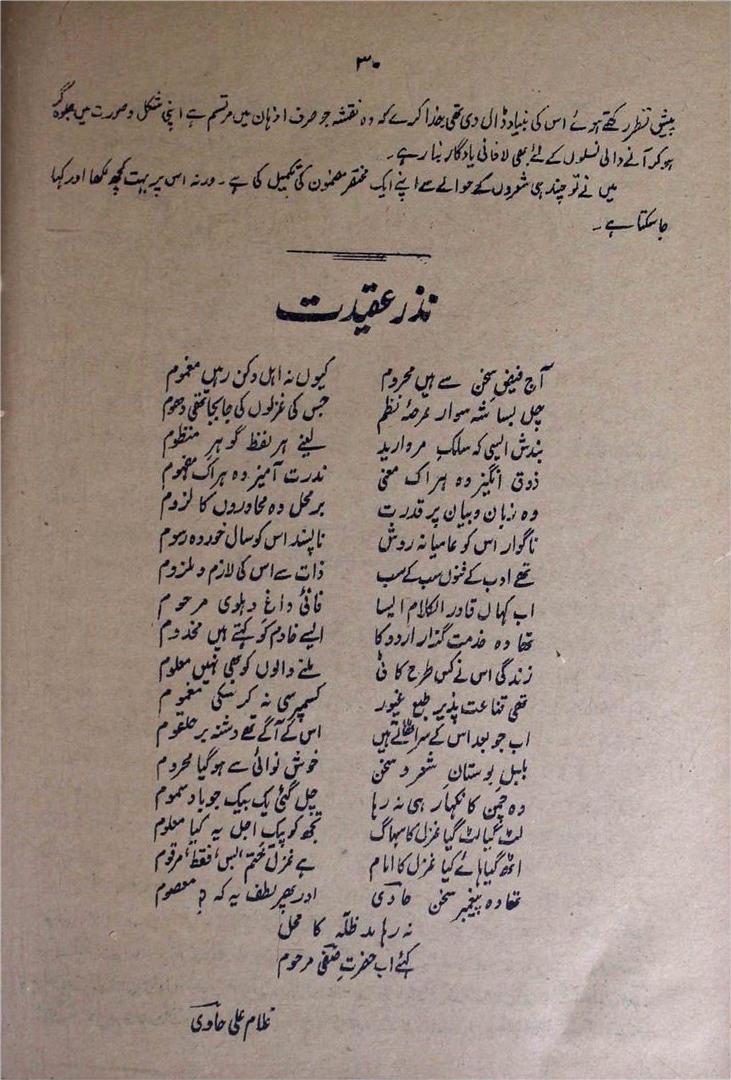 ۳۰
پیش نظر رکھتے ہوئے اس کی بنیاد ڈال دی تھی خدا کرے کہ وہ نقشہ جو صرف اذہان میں مرتسم ہے اپنی شکل و صورت میں جلوہ گر
ہو کر آنے والی نسلوں کے لئے بھی لافانی یادگار بنا رہے۔
میں نے تو چند ہی شعروں کے حوالے سے اپنے ایک مختصر مضمون کی تکمیل کی ہے۔ ورنہ اس پر بہت کچھ لکھا اور کہا
جا سکتا ہے۔
نذر عقیدت
آج فیضِ سخن سے ہیں محروم کیوں نہ اہل دکن رہیں مغموم
چل بسا شہ سوار عرصۂ نظم جس کی غزلوں کی جا بجا تھی دھوم
بندش ایسی کہ سلک مروارید یعنے ہر لفظ گوہر منظوم
ذوق انگیز وہ ہر اک معنی ندرت آمیز وہ ہر اک مفہوم
وہ زبان و بیان پر قدرت برمحل وہ محاوروں کا لزوم
ناگوار اس کو عامیانہ روش ناپسند اس کو سال خوردہ رسوم
تھے ادب کے فنون سب کے سب ذات سے اس کی لازم و ملزوم
اب کہاں قادر الکلام ایسا ثانیٔ داغ دہلوی مرحوم
تھا وہ خدمت گذار اردو کا ایسے خادم کو کہتے ہیں مخدوم
زندگی اس نے کس طرح کاٹی ملنے والوں کو بھی نہیں معلوم
تھی قناعت پذیر طبع غیور کسمپرسی نہ کر سکی مغموم
اب جو بعد اس کے سر اٹھاتے ہیں اس کے آگے تھے دشنہ بر حلقوم
بلبل بوستانِ شعر و سخن خوش نوائی سے ہو گیا محروم
وہ چمن کا نکھار ہی نہ رہا چل گئی یک بیک جو باد سموم
لٹ گیا لٹ گیا غزل کا سہاگ تجھ کو پیک اجل یہ کیا معلوم
اٹھ گیا ہائے کیا غزل کا امام ہے غزل ختم، بس، فقط، مرقوم
تھا وہ پیغمبر سخن حاوی اور پھر لطف یہ کہ ؟ معصوم
نہ رہا مد ظلّہ کا محل
کہئے اب حضرتِ صفی مرحوم
غلام علی حاوی